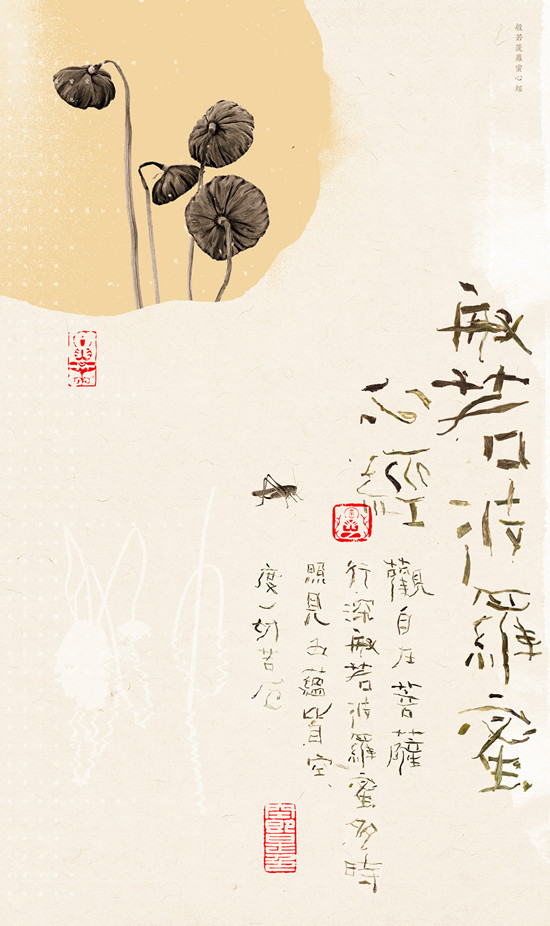 般若菠羅蜜心經
般若波羅蜜
心經
觀自在菩薩
行深般若波羅蜜多時
照見五蘊皆空、
度一切苦厄
空即是色